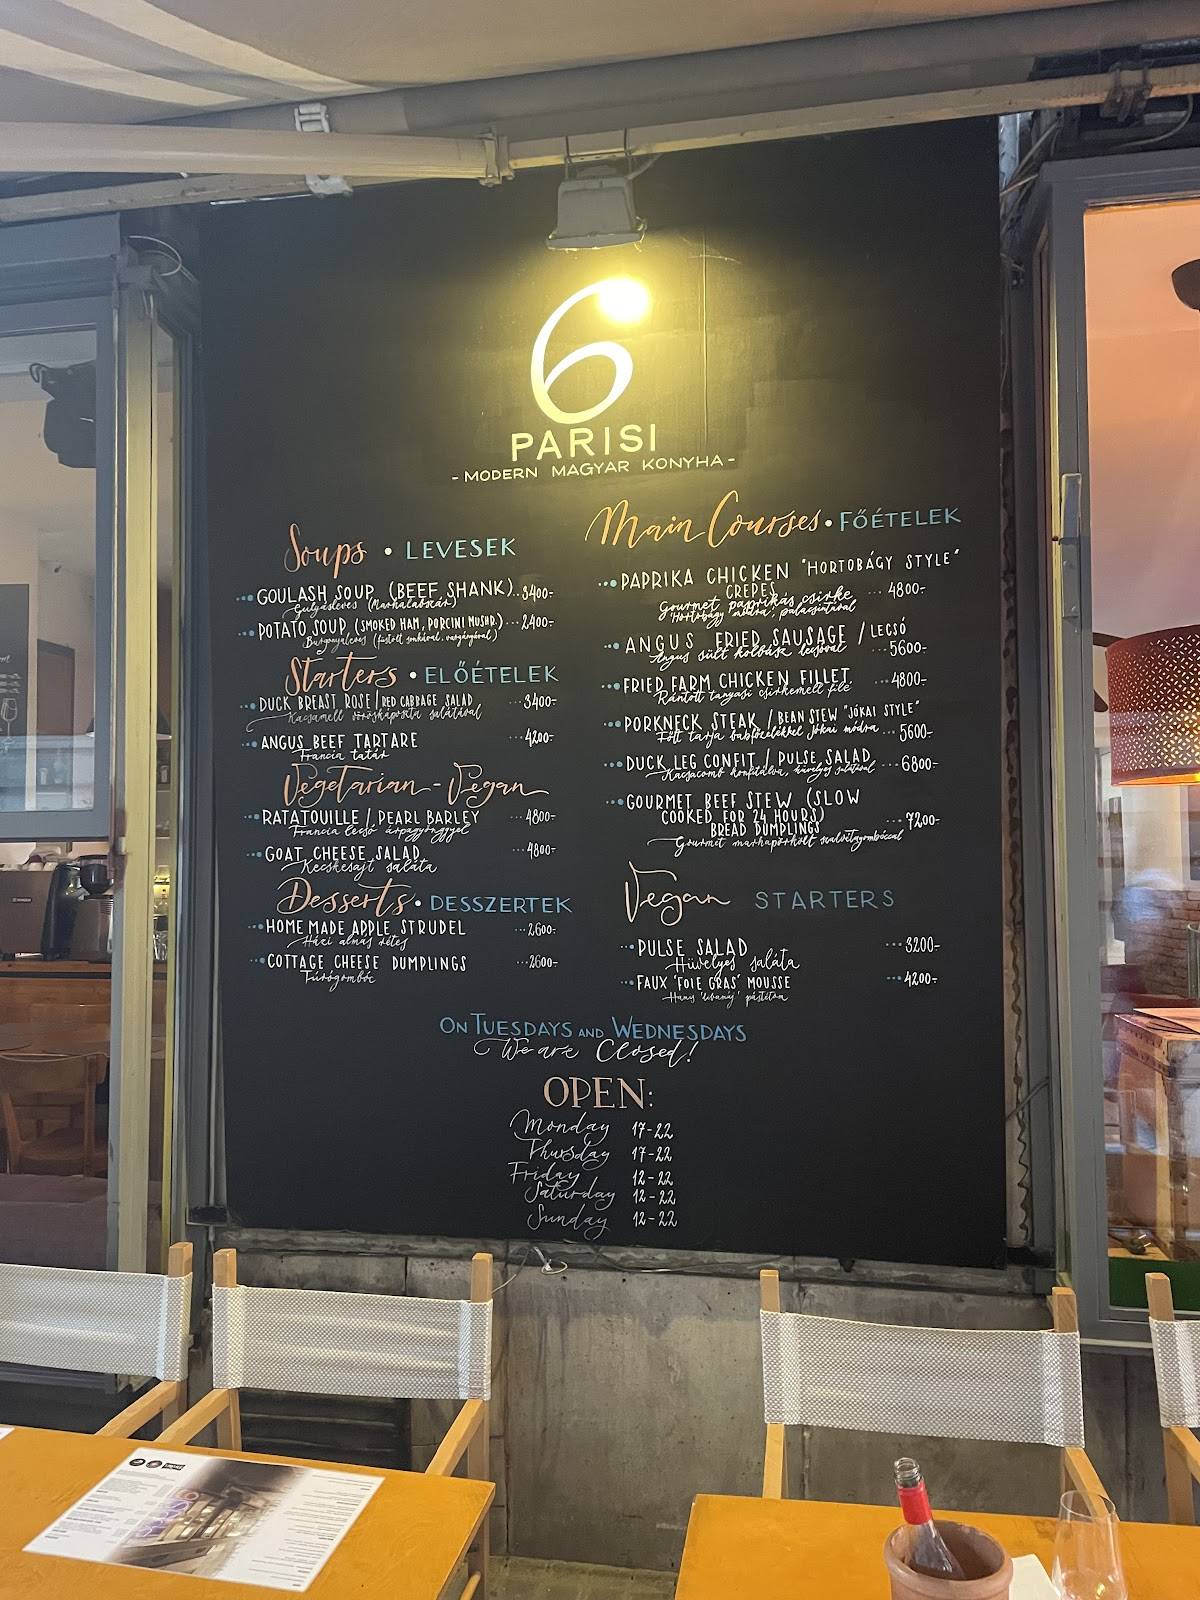 6
PARISI
- MODERN MAGYAR KONYHA -
Soups • LEVESEK
GOULASH SOUP (BEEF SHANK)..3400-
Gulyásleves (Marhalábszár)
POTATO SOUP (SMOKED HAM, PORCINI MUSHR.)...2400-
Burgonyaleves (füstölt sonkával, vargányával)
Starters • ELŐÉTELEK
DUCK BREAST ROSE/RED CABBAGE SALAD ...3400-
Kacsamell vöröskáposzta salátával
ANGUS BEEF TARTARE ...4200-
Francia tatár
Vegetarian - Vegan
RATATOUILLE / PEARL BARLEY ...4800-
Francia lecsó árpagyönggyel
GOAT CHEESE SALAD ...4800-
Kecskesajt saláta
Desserts • DESSZERTEK
HOME MADE APPLE STRUDEL ...2600-
Házi almás rétes
COTTAGE CHEESE DUMPLINGS ...2600-
Túrógombóc
Main Courses • FŐÉTELEK
PAPRIKA CHICKEN "HORTOBÁGY STYLE"
CREPES ... 4800-
Gourmet paprikás csirke
"Hortobágy módra", palacsintával
ANGUS FRIED SAUSAGE / LECSÓ
Angus sült kolbász lecsóval ...5600-
FRIED FARM CHICKEN FILLET ...4800-
Rántott tanyasi csirkemell filé
PORKNECK STEAK / BEAN STEW "JÓKAI STYLE"
Főtt tarja babfőzelékkel Jókai módra ...5600-
DUCK LEG CONFIT / PULSE SALAD ...6800-
Kacsacomb konfitálva, hüvelyes salátával
GOURMET BEEF STEW (SLOW
COOKED FOR 24 HOURS)
BREAD DUMPLINGS ...7200-
Gourmet marhapörkölt szalvétagombóccal
Vegan STARTERS
PULSE SALAD ...3200-
Hüvelyes saláta
FAUX 'FOIE GRAS' MOUSSE ...4200-
Hamis 'libamáj' pástétom
ON TUESDAYS AND WEDNESDAYS
We are Closed!
OPEN:
Monday 17-22
Thursday 17-22
Friday 12-22
Saturday 12-22
Sunday 12-22